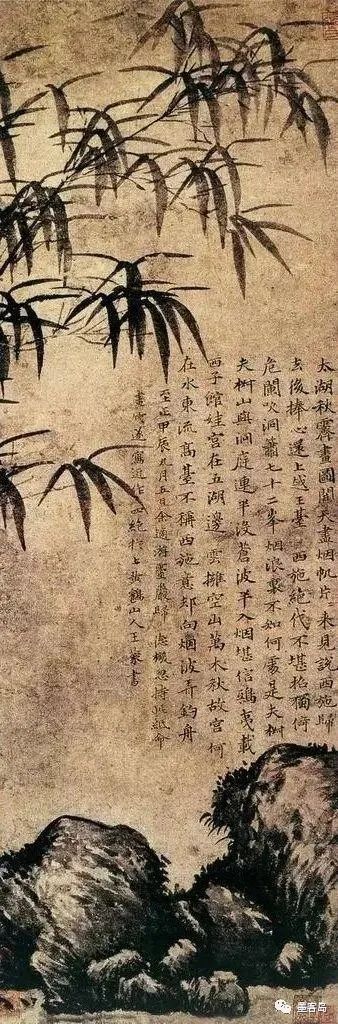 太湖秋霽畫圖開天盡烟帆片〻來見說西施歸
去後捧心還上越王臺西施絕代不堪招獨倚
危闌吹洞簫七十二峯烟浪裏不知何處是夫椒
夫椒山與洞庭連半沒蒼波半入烟堪信鴟夷載
西子館娃宮在五湖邊雲擁空山萬木秋故宮何
在水東流高臺不稱西施意却向烟波弄釣舟
至正甲辰九月五日余適游靈巖歸德機忽持此紙命
畫竹遂寫近作四絕於上黃鶴山人王蒙書
墨客岛